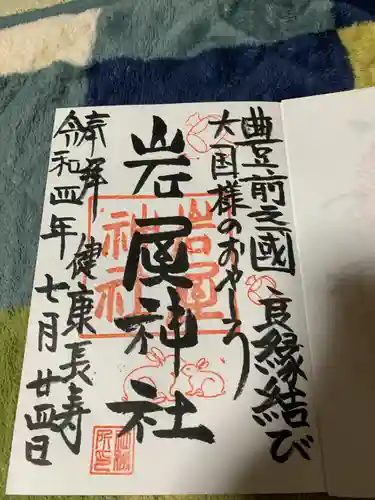 豊前之國 良縁結び
大国様のおやしろ
岩屋神社
奉拝 健康長寿
令和四年 七月廿四日
岩屋
神社